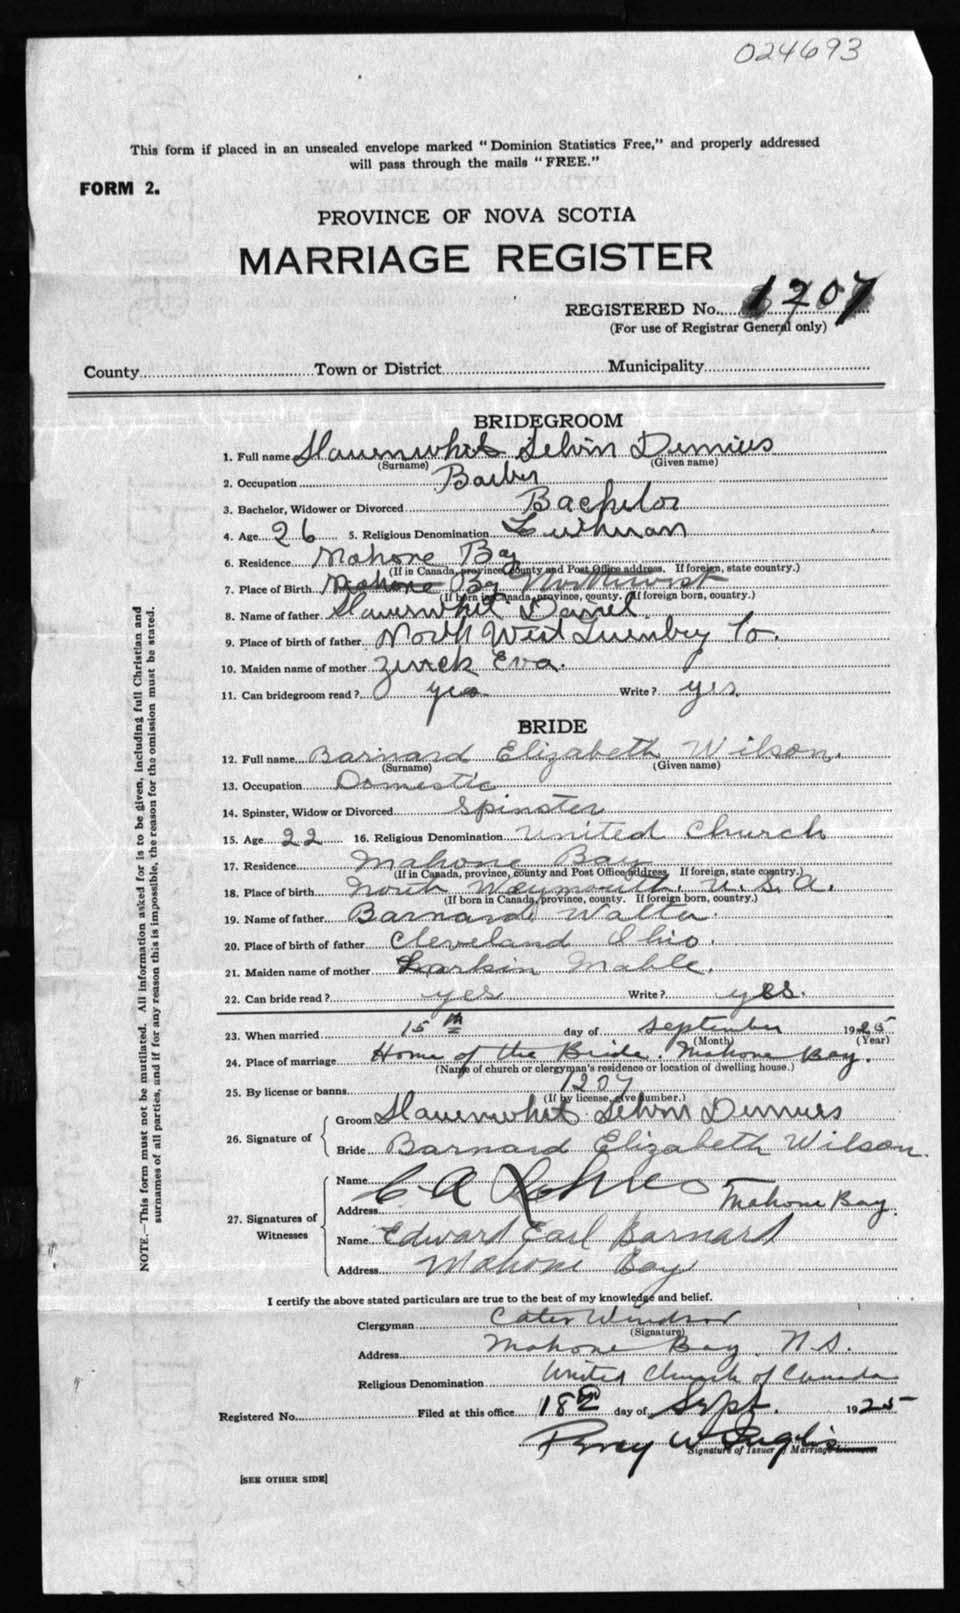 024693
This form if placed in an unsealed envelope marked "Dominion Statistics Free," and properly addressed
will pass through the mails "FREE."
FORM 2.
PROVINCE OF NOVA SCOTIA
MARRIAGE REGISTER
REGISTERED No. 1207
(For use of Registrar General only)
County Town or District Municipality
BRIDEGROOM
1. Full name Slauenwhit Selvin
(Surname) (Given name)
2. Occupation Barber
3. Bachelor, Widower or Divorced Bachelor
4. Age 26 5. Religious Denomination Lutheran
6. Residence Mahone Bay
(If in Canada, province, county and Post Office address. If foreign, state country.)
7. Place of Birth Mahone Bay Northwest
(If born in Canada, province, county. If foreign born, country.)
8. Name of father Slauenwhit Daniel
9. Place of birth of father North West Lunenbrg Co.
10. Maiden name of mother Zinck Eva.
11. Can bridegroom read? yes Write? yes
BRIDE
12. Full name Barnard Elizabeth Wilson.
(Surname) (Given name)
13. Occupation Domestic
14. Spinster, Widow or Divorced Spinster
15. Age 22 16. Religious Denomination United Church
17. Residence Mahone Bay
(If in Canada, province, county and Post Office address. If foreign, state country.)
18. Place of birth North Weymouth. U.S.A.
(If born in Canada, province, county. If foreign born, country.)
19. Name of father Barnard Walter
20. Place of birth of father Cleveland Ohio.
21. Maiden name of mother Larkin Mable.
22. Can bride read? yes Write? yes.
23. When married 15th day of September 1925
(Month) (Year)
24. Place of marriage Home of the Bride. Mahone Bay.
(Name of church or clergyman's residence or location of dwelling house.)
25. By license or banns 1207
(If by license, give number.)
26. Signature of
Groom Slauenwhit Selvin
Bride Barnard Elizabeth Wilson.
27. Signatures of Witnesses
Name C A
Address Mahone Bay.
Name Edward Earl Barnard
Address Mahone Bay
I certify the above stated particulars are true to the best of my knowledge and belief.
Clergyman Cater Windsor
(Signature)
Address Mahone Bay. N.S.
Religious Denomination United Church of Canada
Registered No. Filed at this office 18th day of Sept. 1925
Percy W Inglis
Signature of Issuer of Marriage Licenses
[SEE OTHER SIDE]
NOTE.—This form must not be mutilated. All information asked for is to be given, including full Christian and
surnames of all parties, and if for any reason this is impossible, the reason for the omission must be stated.